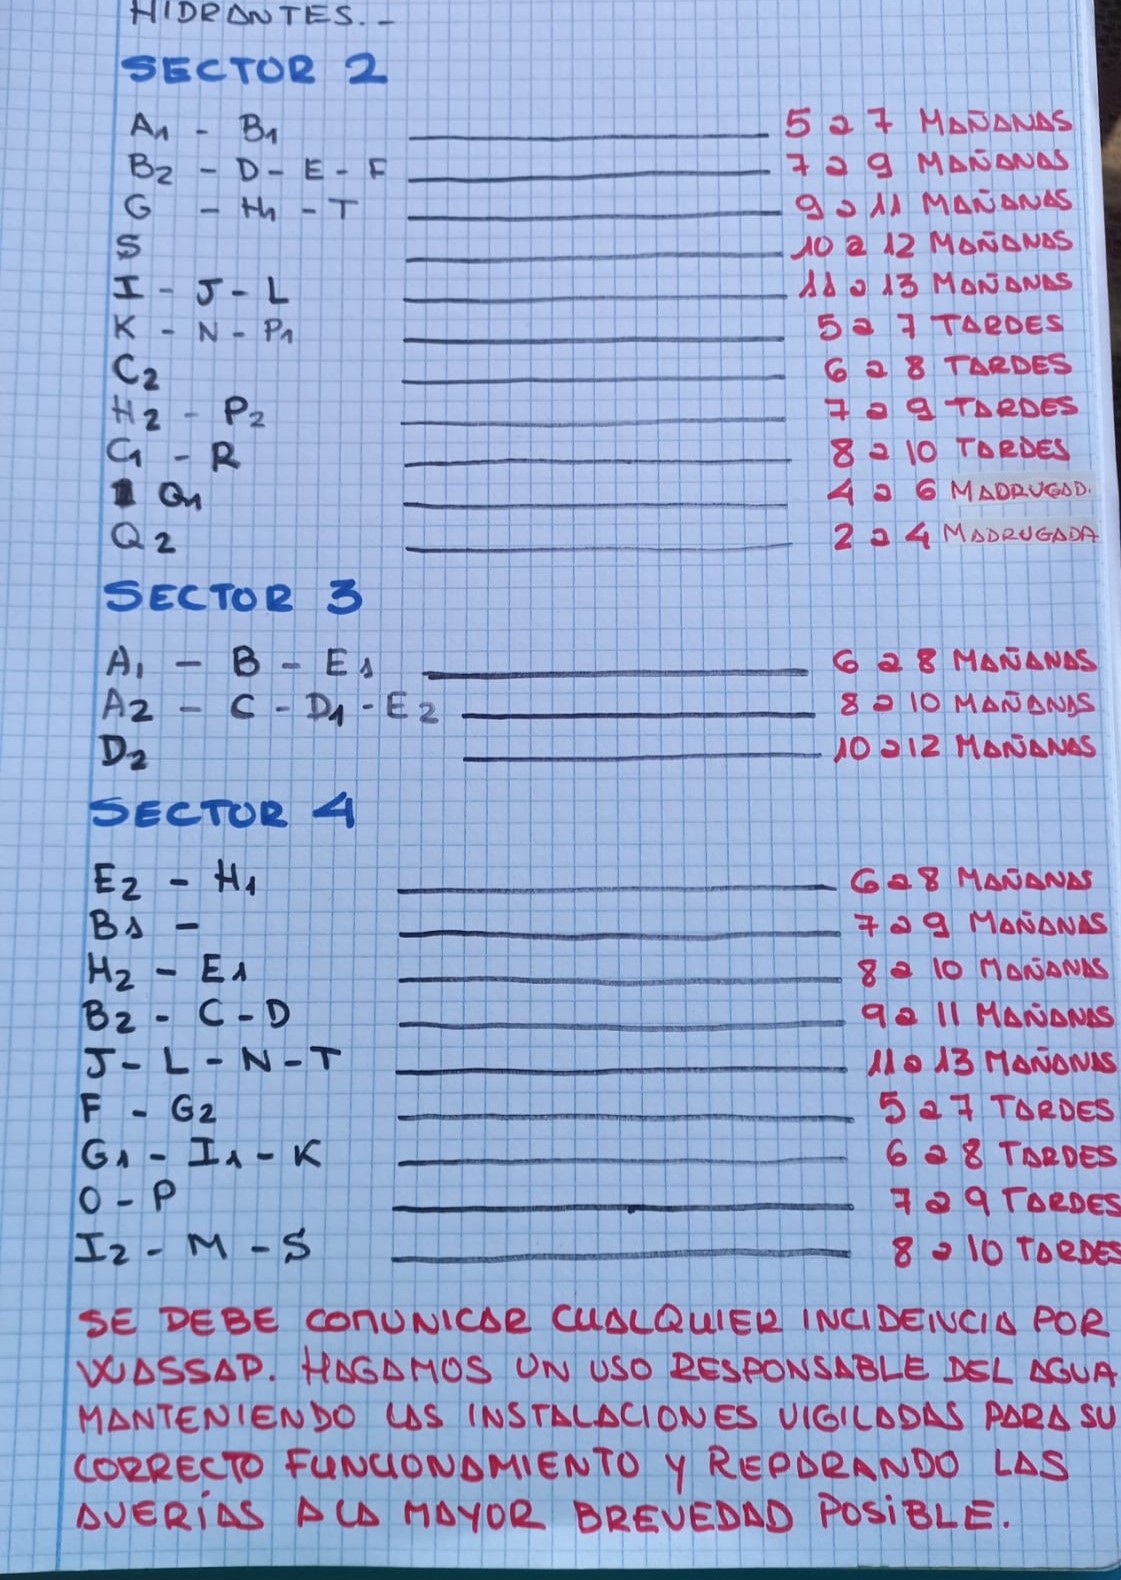 HIDRANTES.-
SECTOR 2
A1 - B1 5 a 7 MAÑANAS
B2 - D - E - F 7 a 9 MAÑANAS
G - H1 - T 9 a 11 MAÑANAS
S 10 a 12 MAÑANAS
I - J - L 11 a 13 MAÑANAS
K - N - P1 5 a 7 TARDES
C2 6 a 8 TARDES
H2 - P2 7 a 9 TARDES
C1 - R 8 a 10 TARDES
Q1 4 a 6 MADRUGAD.
Q2 2 a 4 MADRUGADA
SECTOR 3
A1 - B - E1 6 a 8 MAÑANAS
A2 - C - D1 - E2 8 a 10 MAÑANAS
D2 10 a 12 MAÑANAS
SECTOR 4
E2 - H1 6 a 8 MAÑANAS
B1 - 7 a 9 MAÑANAS
H2 - E1 8 a 10 MAÑANAS
B2 - C - D 9 a 11 MAÑANAS
J - L - N - T 11 a 13 MAÑANAS
F - G2 5 a 7 TARDES
G1 - I1 - K 6 a 8 TARDES
O - P 7 a 9 TARDES
I2 - M - S 8 a 10 TARDES
SE DEBE COMUNICAR CUALQUIER INCIDENCIA POR
WASSAP. HAGAMOS UN USO RESPONSABLE DEL AGUA
MANTENIENDO LAS INSTALACIONES VIGILADAS PARA SU
CORRECTO FUNCIONAMIENTO Y REPARANDO LAS
AVERÍAS A LA MAYOR BREVEDAD POSIBLE.